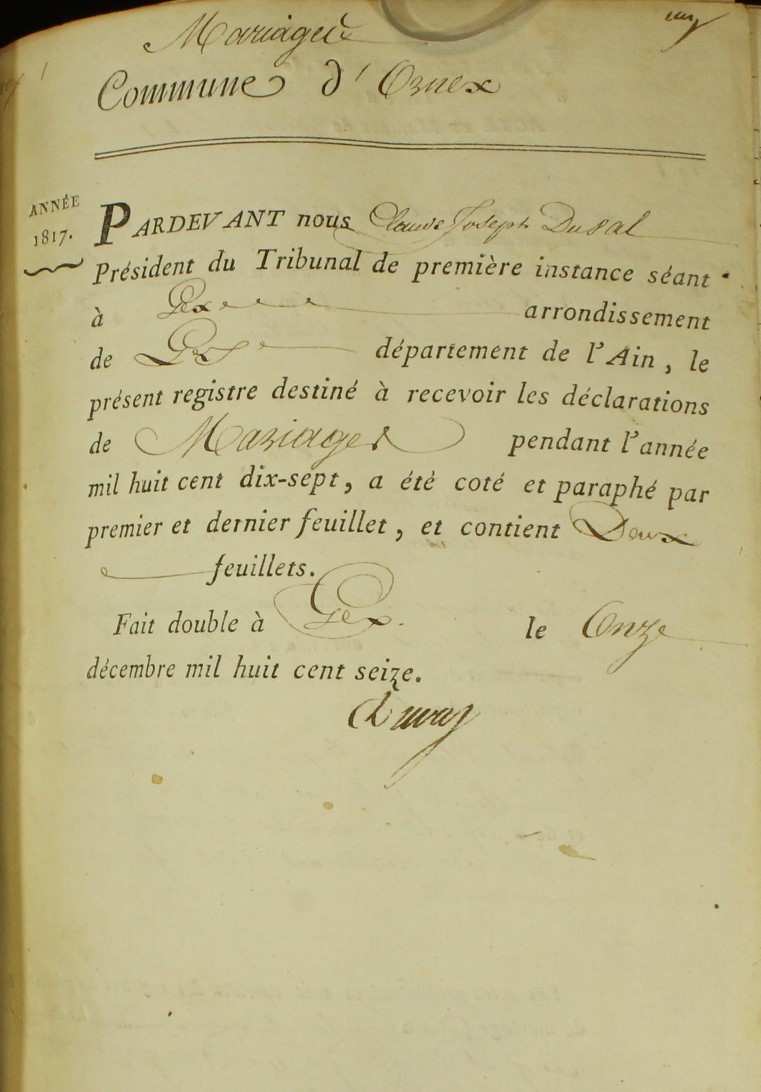 Mariages
Commune d'Ornex
ANNÉE
1817.
PARDEVANT nous Claude Joseph Duval
Président du Tribunal de première instance séant
à Gex arrondissement
de Gex département de l'Ain, le
présent registre destiné à recevoir les déclarations
de Mariages pendant l'année
mil huit cent dix-sept, a été coté et paraphé par
premier et dernier feuillet, et contient Deux
feuillets.
Fait double à Gex. le Onze
décembre mil huit cent seize.